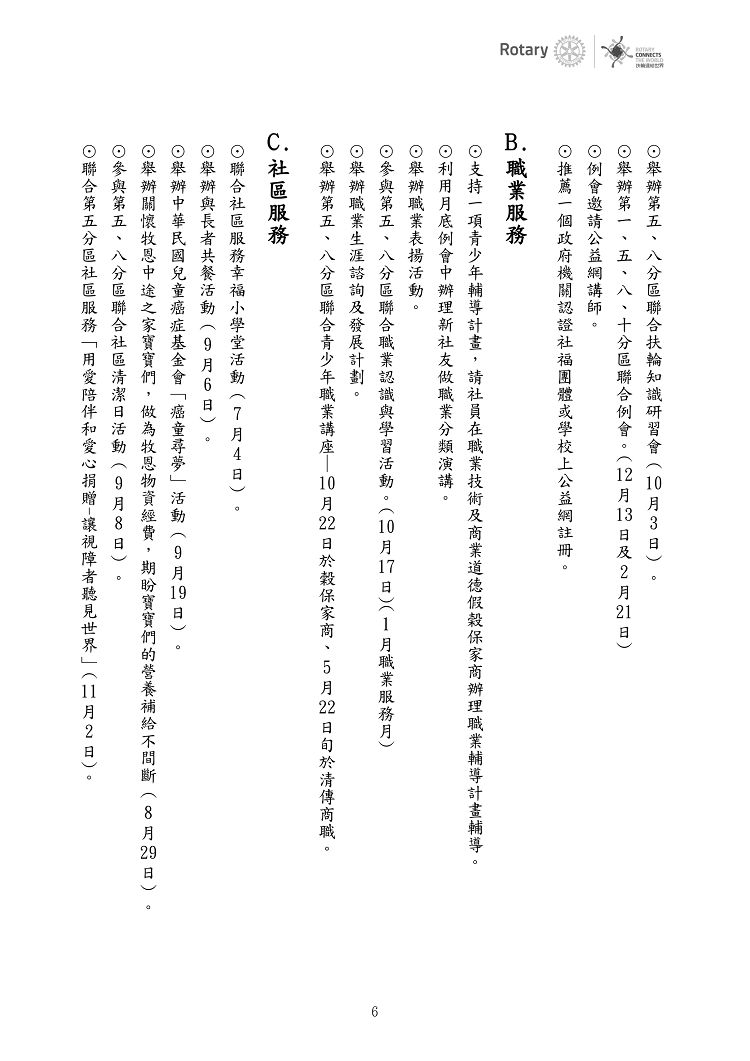 Rotary
ROTARY
CONNECTS
THE WORLD
扶輪連結世界
⊙舉辦第五、八分區聯合扶輪知識研習會(10月3日)。
⊙舉辦第一、五、八、十分區聯合例會。(12月13日及2月21日)
⊙例會邀請公益網講師。
⊙推薦一個政府機關認證社福團體或學校上公益網註冊。
B. 職業服務
⊙支持一項青少年輔導計畫，請社員在職業技術及商業道德假穀保家商辦理職業輔導計畫輔導。
⊙利用月底例會中辦理新社友做職業分類演講。
⊙舉辦職業表揚活動。
⊙參與第五、八分區聯合職業認識與學習活動。(10月17日)(1月職業服務月)
⊙舉辦職業生涯諮詢及發展計劃。
⊙舉辦第五、八分區聯合青少年職業講座—10月22日於穀保家商、5月22日旬於清傳商職。
C. 社區服務
⊙聯合社區服務幸福小學堂活動(7月4日)。
⊙舉辦與長者共餐活動(9月6日)。
⊙舉辦中華民國兒童癌症基金會「癌童尋夢」活動(9月19日)。
⊙舉辦關懷牧恩中途之家寶寶們，做為牧恩物資經費，期盼寶寶們的營養補給不間斷(8月29日)。
⊙參與第五、八分區聯合社區清潔日活動(9月8日)。
⊙聯合第五分區社區服務「用愛陪伴和愛心捐贈-讓視障者聽見世界」(11月2日)。
6